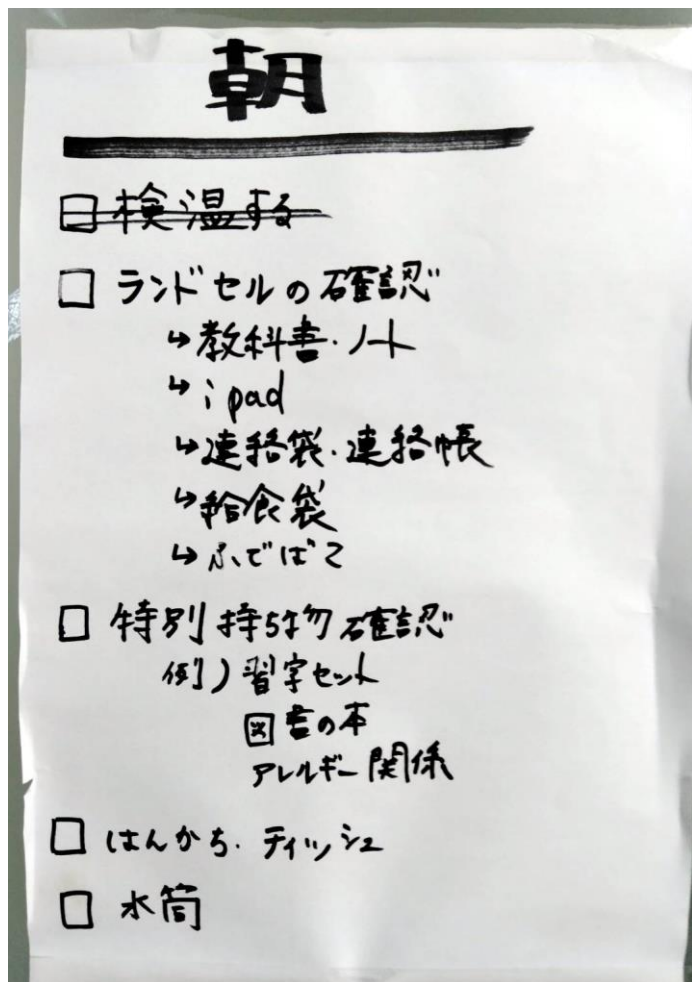 朝
□ 検温する
□ ランドセルの確認
↳教科書・ノート
↳ipad
↳連絡袋・連絡帳
↳給食袋
↳ふでばこ
□ 特別持ち物確認
例)習字セット
図書の本
アレルギー関係
□ はんかち・ティッシュ
□ 水筒